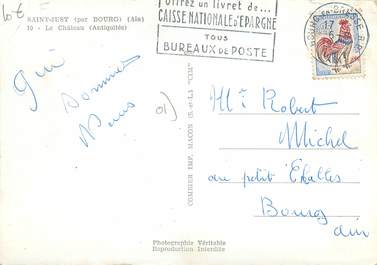 10€
SAINT-JUST (par BOURG) (Ain)
10 - Le Château (Antiquités)
Offrez un livret de...
CAISSE NATIONALE D'ÉPARGNE
TOUS
BUREAUX DE POSTE
17
6
01)
COMBIER IMP. MACON (S.-et-L.) "CIM"
Mr Robert
Michel
au petit Challes
Bourg
Ain
Photographie Véritable
Reproduction Interdite